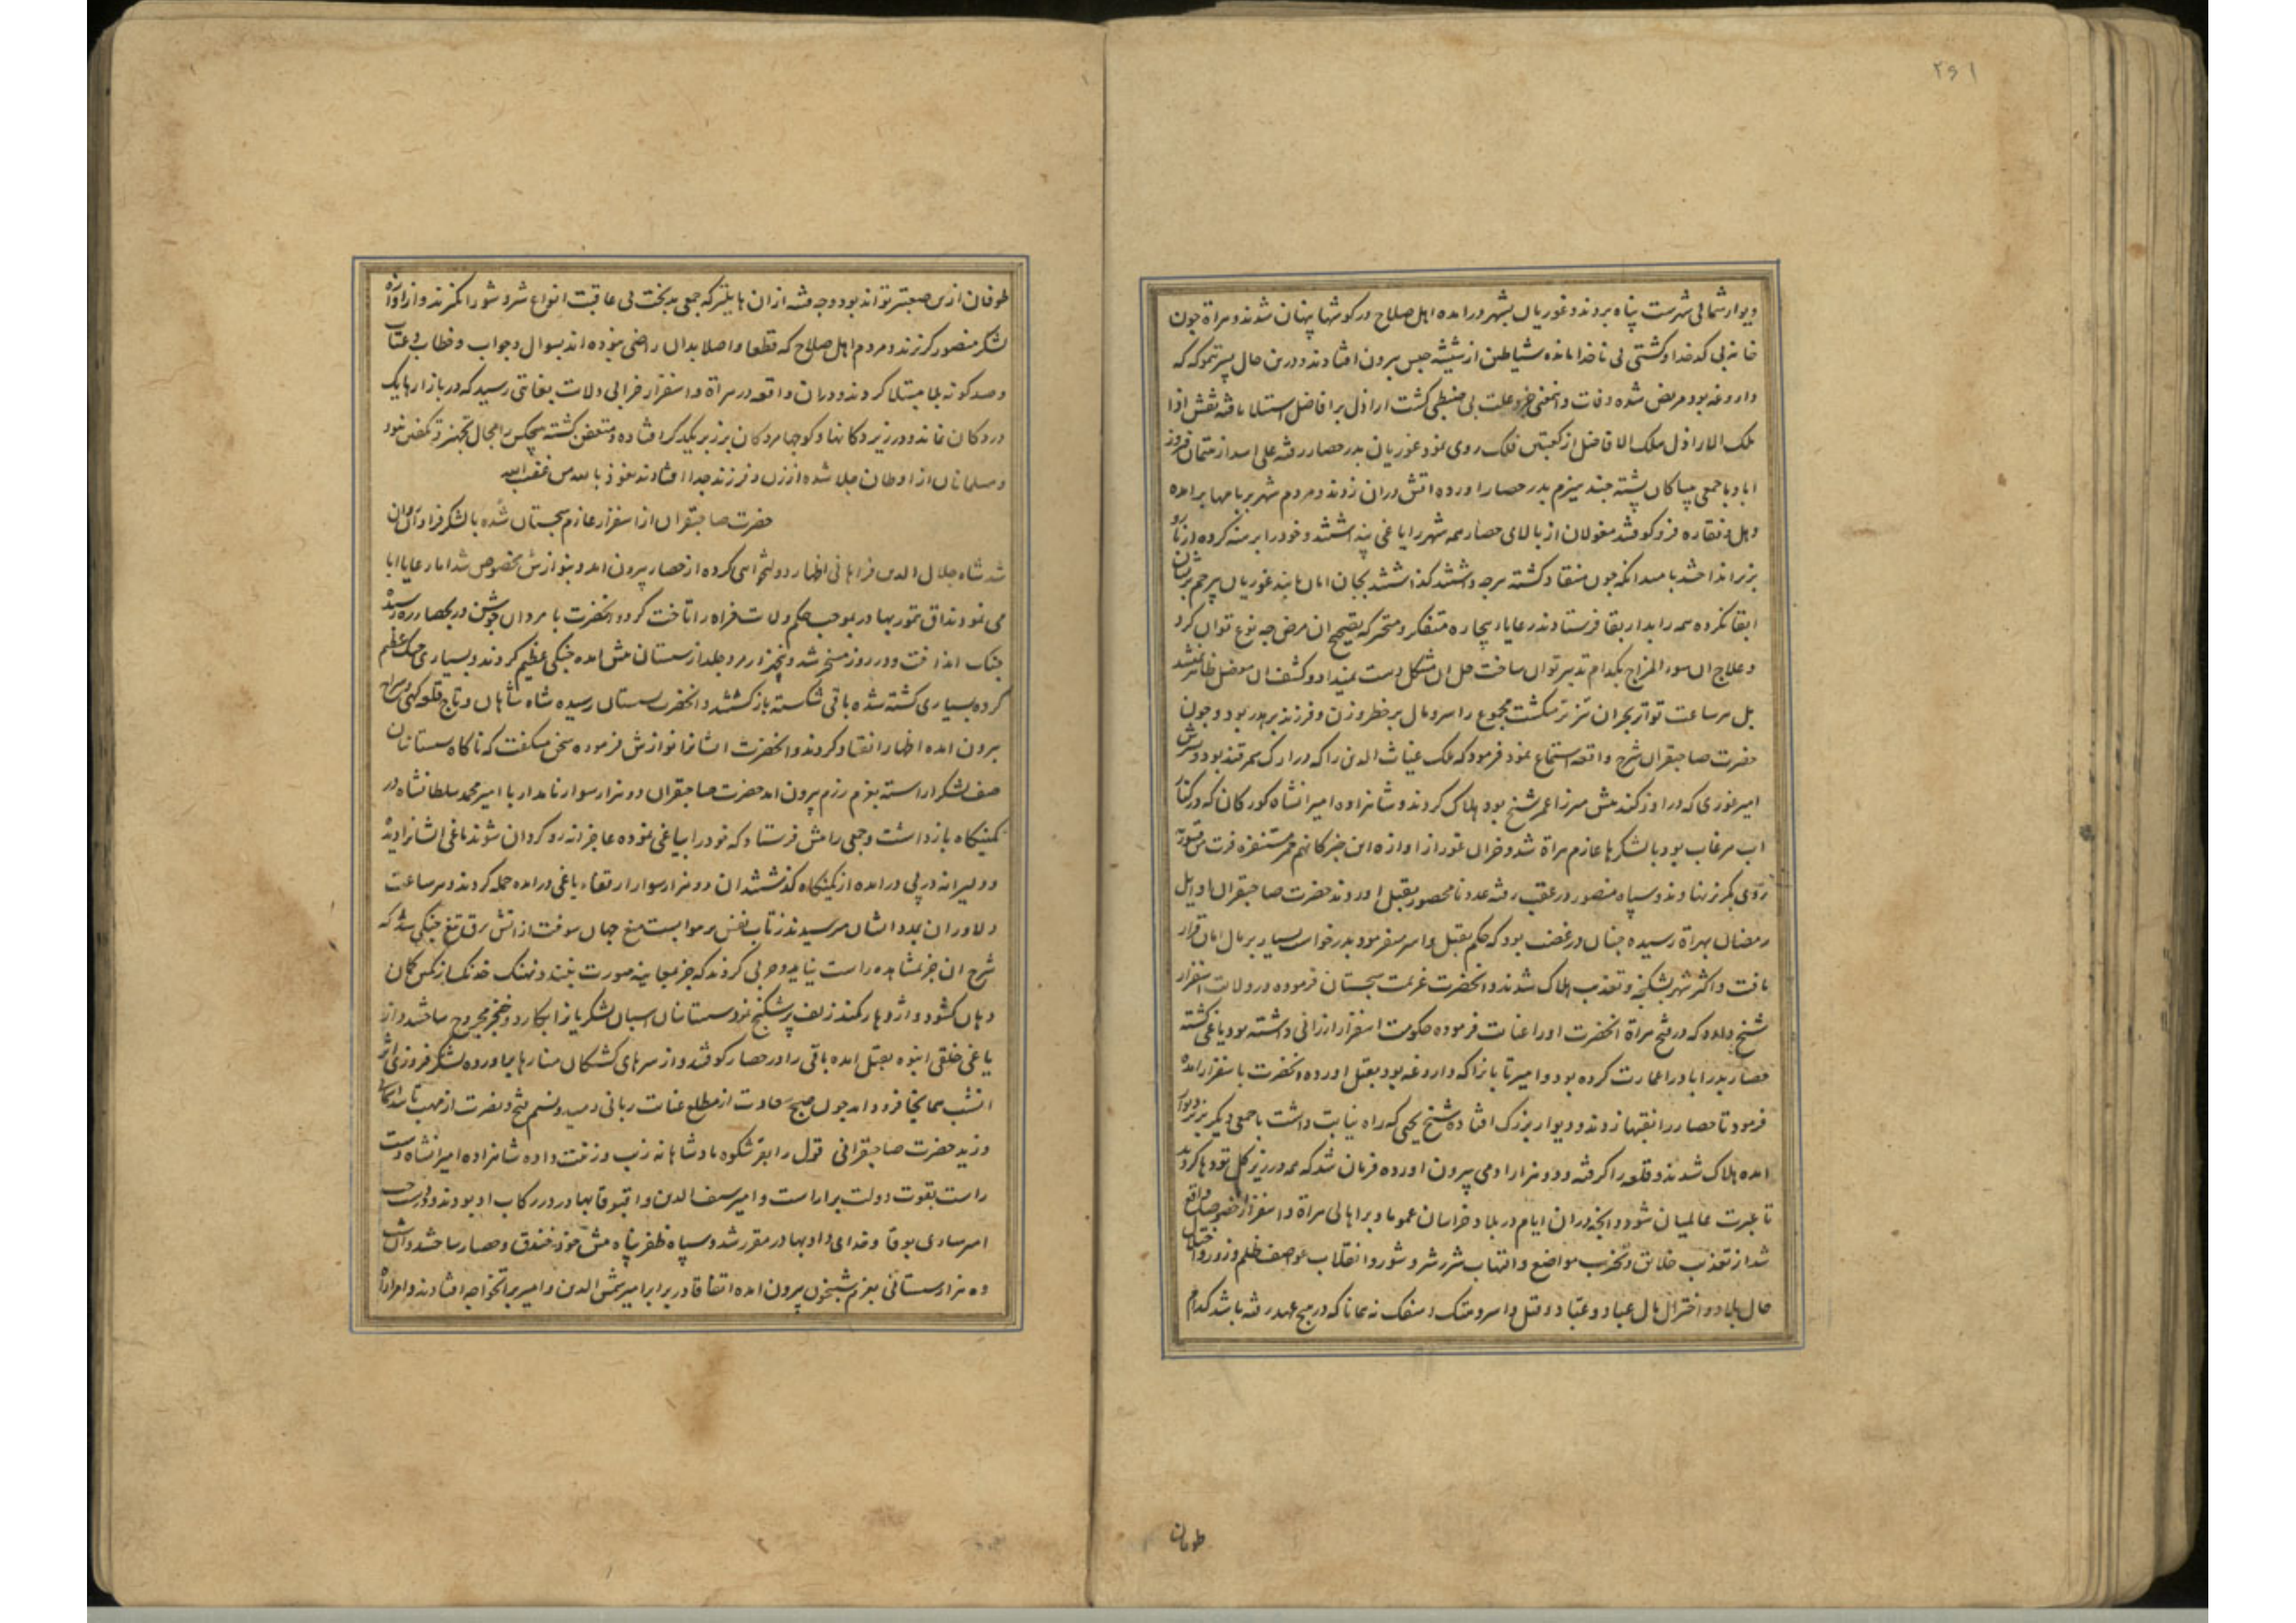 ۲۶۱
دیوار شمالی شهرست پناه بردند و غوریان بشهر درامده اهل صلاح در کوشها پنهان شدند و هراة جون
خانه بی کدخدا و کشتی بی ناخدا مانده شیاطین از شیشه حبس بیرون افتادند و درین حال پسر تموکه که
داروغه بود مریض شده وفات و علت بی ضبطی کشت اراذل بر افاضل استیلا یافته نقش اذا
ملک الاراذل هلک الافاضل از کعبتین فلک روی نمود غوریان بدر حصار رفته علی اسد از
اباد با جمعی بیباکان پشته چند هیزم بدر حصار اورده اتش دران زدند و مردم شهر بر بامها برامده
دهل و نقاره فرو کوفتند مغولان از بالای حصار همه شهر را یاغی پنداشتند و خود را برهنه کرده از
بزیر انداختند بامید انکه جون منقاد کشته هرچه داشتند کذاشتند بجان امان یابند غوریان بی رحم
ابقا نکرده همه را بدار بقا فرستادند رعایا بیچاره متفکر و متحیر که تصحیح ان مرض چه نوع توان کرد
و علاج ان سوء المزاج بکدام تدبیر توان ساخت حل ان مشکل دست نمیداد و کشف ان معضل
بل هر ساعت تواتر بحران تیزتر میکشت مجموع را سر و مال بر خطر و زن و فرزند بر هدر بود و جون
حضرت صاحبقران شرح واقعه استماع نمود فرمود که ملک غیاث الدین را که در ارک سمرقند بود و
امیر غوری که در اوزکند پیش میرزا عمر شیخ بود هلاک کردند و شاهزاده امیرانشاه کورکان که در کنار
اب مرغاب بود با لشکرها عازم هراة شد و خران غور از اوازه این خبر کانهم حمر مستنفرة فرت من قسورة
روی بکریز نهادند و سپاه منصور در عقب رفته عدد نامحصور بقتل اوردند حضرت صاحبقران اوایل
رمضان بهراة رسیده جنان در غضب بود که حکم بقتل و اسر میفرمود بدرخواست بسیار بر مال امان قرار
یافت و اکثر شهر بشکنجه و تعذیب هلاک شدند و انحضرت عزیمت سجستان فرموده در ولایت اسفزار
شیخ داود که در فتح هراة انحضرت او را عنایت فرموده حکومت اسفزار ارزانی داشته بود یاغی کشته
حصار بدراباد را عمارت کرده بود و امیر تابان را که داروغه بود بقتل اورده انحضرت باسفزار امده
فرمود تا حصار را نقبها زدند و دیوار بزرک افتاده شیخ یحیی که راه نیابت داشت با جمعی دیکر بزیر دیوار
امده هلاک شدند و قلعه را کرفته و دو هزار ادمی بیرون اورده فرمان شد که همه در زیر کل تودها کردند
تا عبرت عالمیان شود و انچه دران ایام در بلاد خراسان عموما و بر اهالی هراة و اسفزار خصوصا واقع
شد از تعذیب خلایق و تخریب مواضع و التهاب شرر شر و شور و انقلاب عواصف ظلم و زور و اختلال
حال بلاد و اختزال مال عباد و عتاد و قتل و اسر و هتک و سفک نه همانا که در هیچ عهد رفته باشد کدام
طوفان
طوفان ازین صعبتر تواند بود و چه فتنه ازان هایلتر که جمعی بدبخت بی عاقبت انواع شر و شور انکیزند و از اوازه
لشکر منصور کریزند و مردم اهل صلاح که قطعا و اصلا بدان راضی نبوده اند بسوال و جواب و خطاب و عتاب
و صد کونه بلا مبتلا کردند و دران واقعه در هراة و اسفزار خرابی ولایت بغایتی رسید که در بازارها یک
در دکان نماند و در زیر دکانها و کوچها مردکان بر زبر یکدیکر افتاده و متعفن کشته هیچکس را مجال تجهیز و تکفین نبود
و مسلمانان از اوطان جلا شده از زن و فرزند جدا افتادند نعوذ بالله من غضب الله
حضرت صاحبقران از اسفزار عازم سجستان شده با لشکر فراوان
شد شاه جلال الدین فراهی اظهار دولتخواهی کرده از حصار بیرون امد و بنوازش مخصوص شد اما رعایا ابا
می نمودند اق تمور بهادر بموجب حکم ولایت فراه را تاخت کرد و انحضرت با مردان جوشن در بحصار زره رسید
جنک انداخت و در روز مسخر شد و پنجهزار مرد جلد از سیستان پیش امده جنکی عظیم کردند و بسیاری جنک عظیم
کرده بسیاری کشته شده باقی شکسته باز کشتند و انحضرت بسیستان رسیده شاه شاهان و تاج
بیرون امده اظهار انقیاد کردند و انحضرت ایشانرا نوازش فرموده سخن میکفت که ناکاه سیستانیان
صف لشکر اراسته بعزم رزم بیرون امد حضرت صاحبقران دو هزار سوار نامدار با امیر محمد سلطانشاه در
کمینکاه بازداشت و جمعی را پیش فرستاد که خود را بیاغی نموده عاجزانه رو کردان شوند یاغی ایشانرا دیده
و دلیرانه در پی درامده از کمینکاه کذشتند ان دو هزار سوار از قفاء یاغی درامده حمله کردند و هر ساعت
دلاوران بمدد ایشان میرسیدند ز تاب نفس بر هوا بست میغ جهان سوخت از اتش برق تیغ جنکی شد که
شرح ان جز بمشاهده راست نیاید و حربی کردند که جز بمعاینه صورت نبندد نهنک خدنک از مکمن کمان
دهان کشود و اژدهار کمند زلف پرشکنج نمود سیستانیان اسبان لشکریانرا بکارد و خنجر مجروح ساختند و از
یاغی خلقی انبوه بقتل امده باقی را در حصار کوفتند و از سرهای کشتکان منارها براورده لشکر فیروزی اثر
انشب همانجا فرود امد جون صبح سعادت از مطلع عنایت ربانی دمید و نسیم فتح و نصرت از مهب
وزید حضرت صاحبقرانی قول را بفر شکوه پادشاهانه زیب و زینت داده شاهزاده امیرانشاه دست
راست بقوت دولت براراست و امیر سیف الدین و اقبوقا بهادر در رکاب او بودند و دست جب
امیر ساری بوقا و خدای داد بهادر مقرر شد و سپاه ظفرپناه پیش خود خندق و حصار ساختند و ان شب
ده هزار سیستانی بعزم شبیخون بیرون امده اتفاقا در برابر امیر شمس الدین و امیر براتخواجه افتادند و امراء